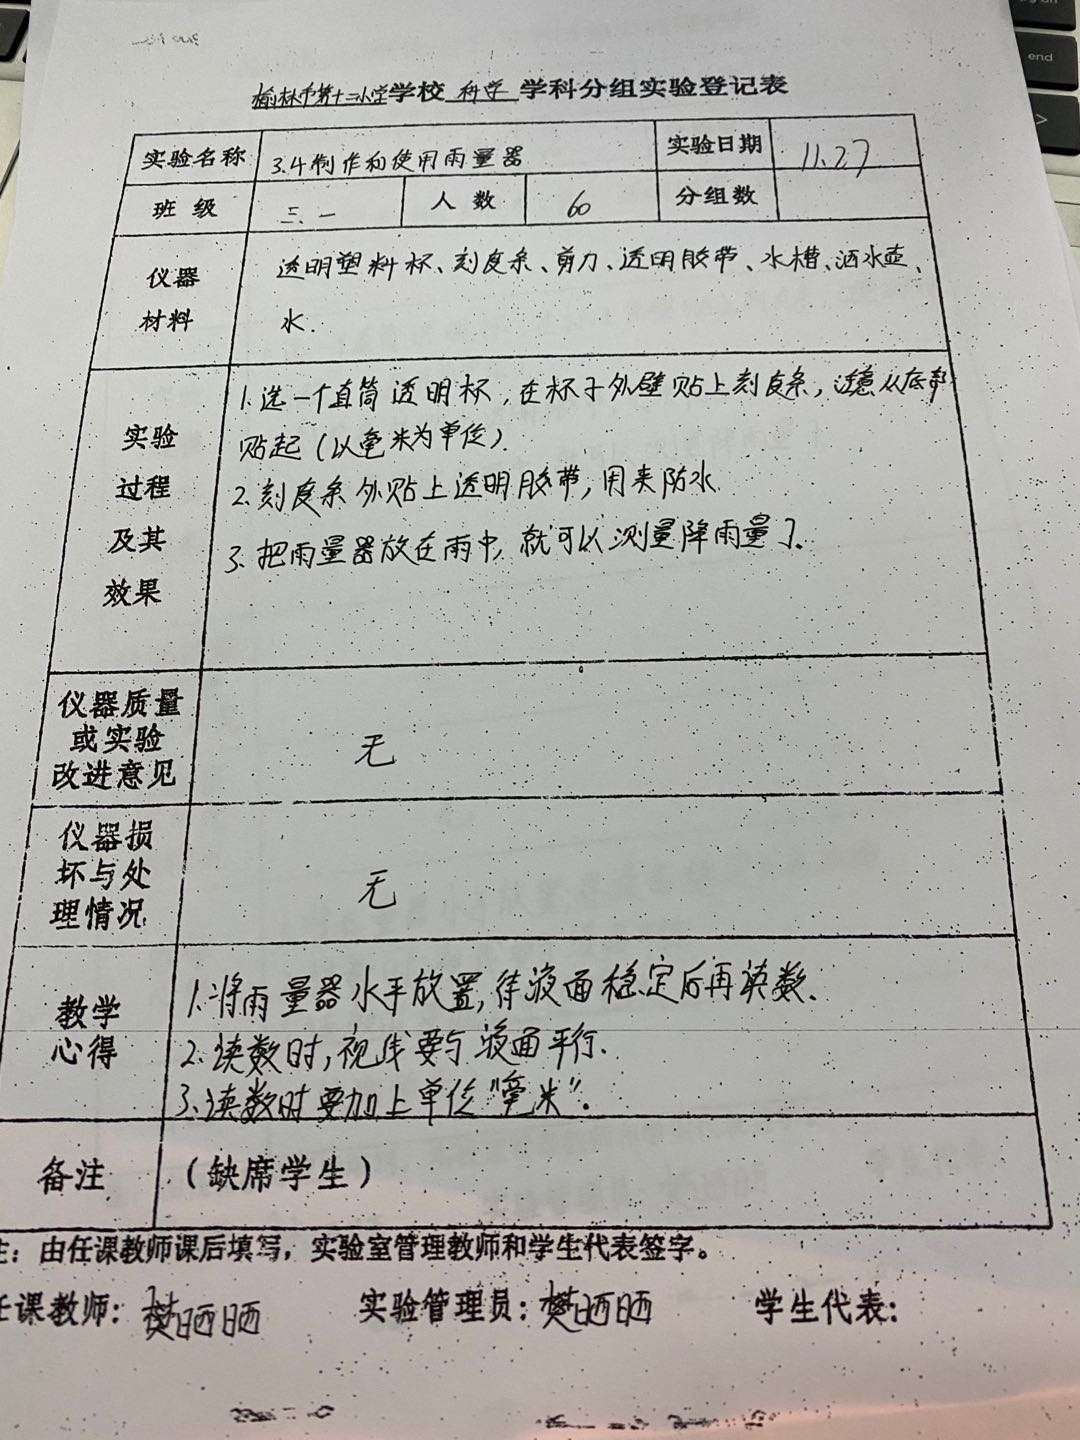 榆林市第十二小学学校 科学 学科分组实验登记表
实验名称 3.4制作和使用雨量器 实验日期 11.27
班 级 三.一 人 数 60 分组数
仪器材料 透明塑料杯、刻度条、剪刀、透明胶带、水槽、洒水壶、
水.
实验过程及其效果
1.选一个直筒透明杯,在杯子外壁贴上刻度条,注意从底部
贴起(以毫米为单位).
2.刻度条外贴上透明胶带,用来防水
3.把雨量器放在雨中,就可以测量降雨量了.
仪器质量
或实验
改进意见
无
仪器损
坏与处
理情况
无
教学
心得
1.将雨量器水平放置,待液面稳定后再读数.
2.读数时,视线要与液面平行.
3.读数时要加上单位"毫米".
备注 (缺席学生)
注:由任课教师课后填写,实验室管理教师和学生代表签字。
任课教师:樊晒晒 实验管理员:樊晒晒 学生代表:
end